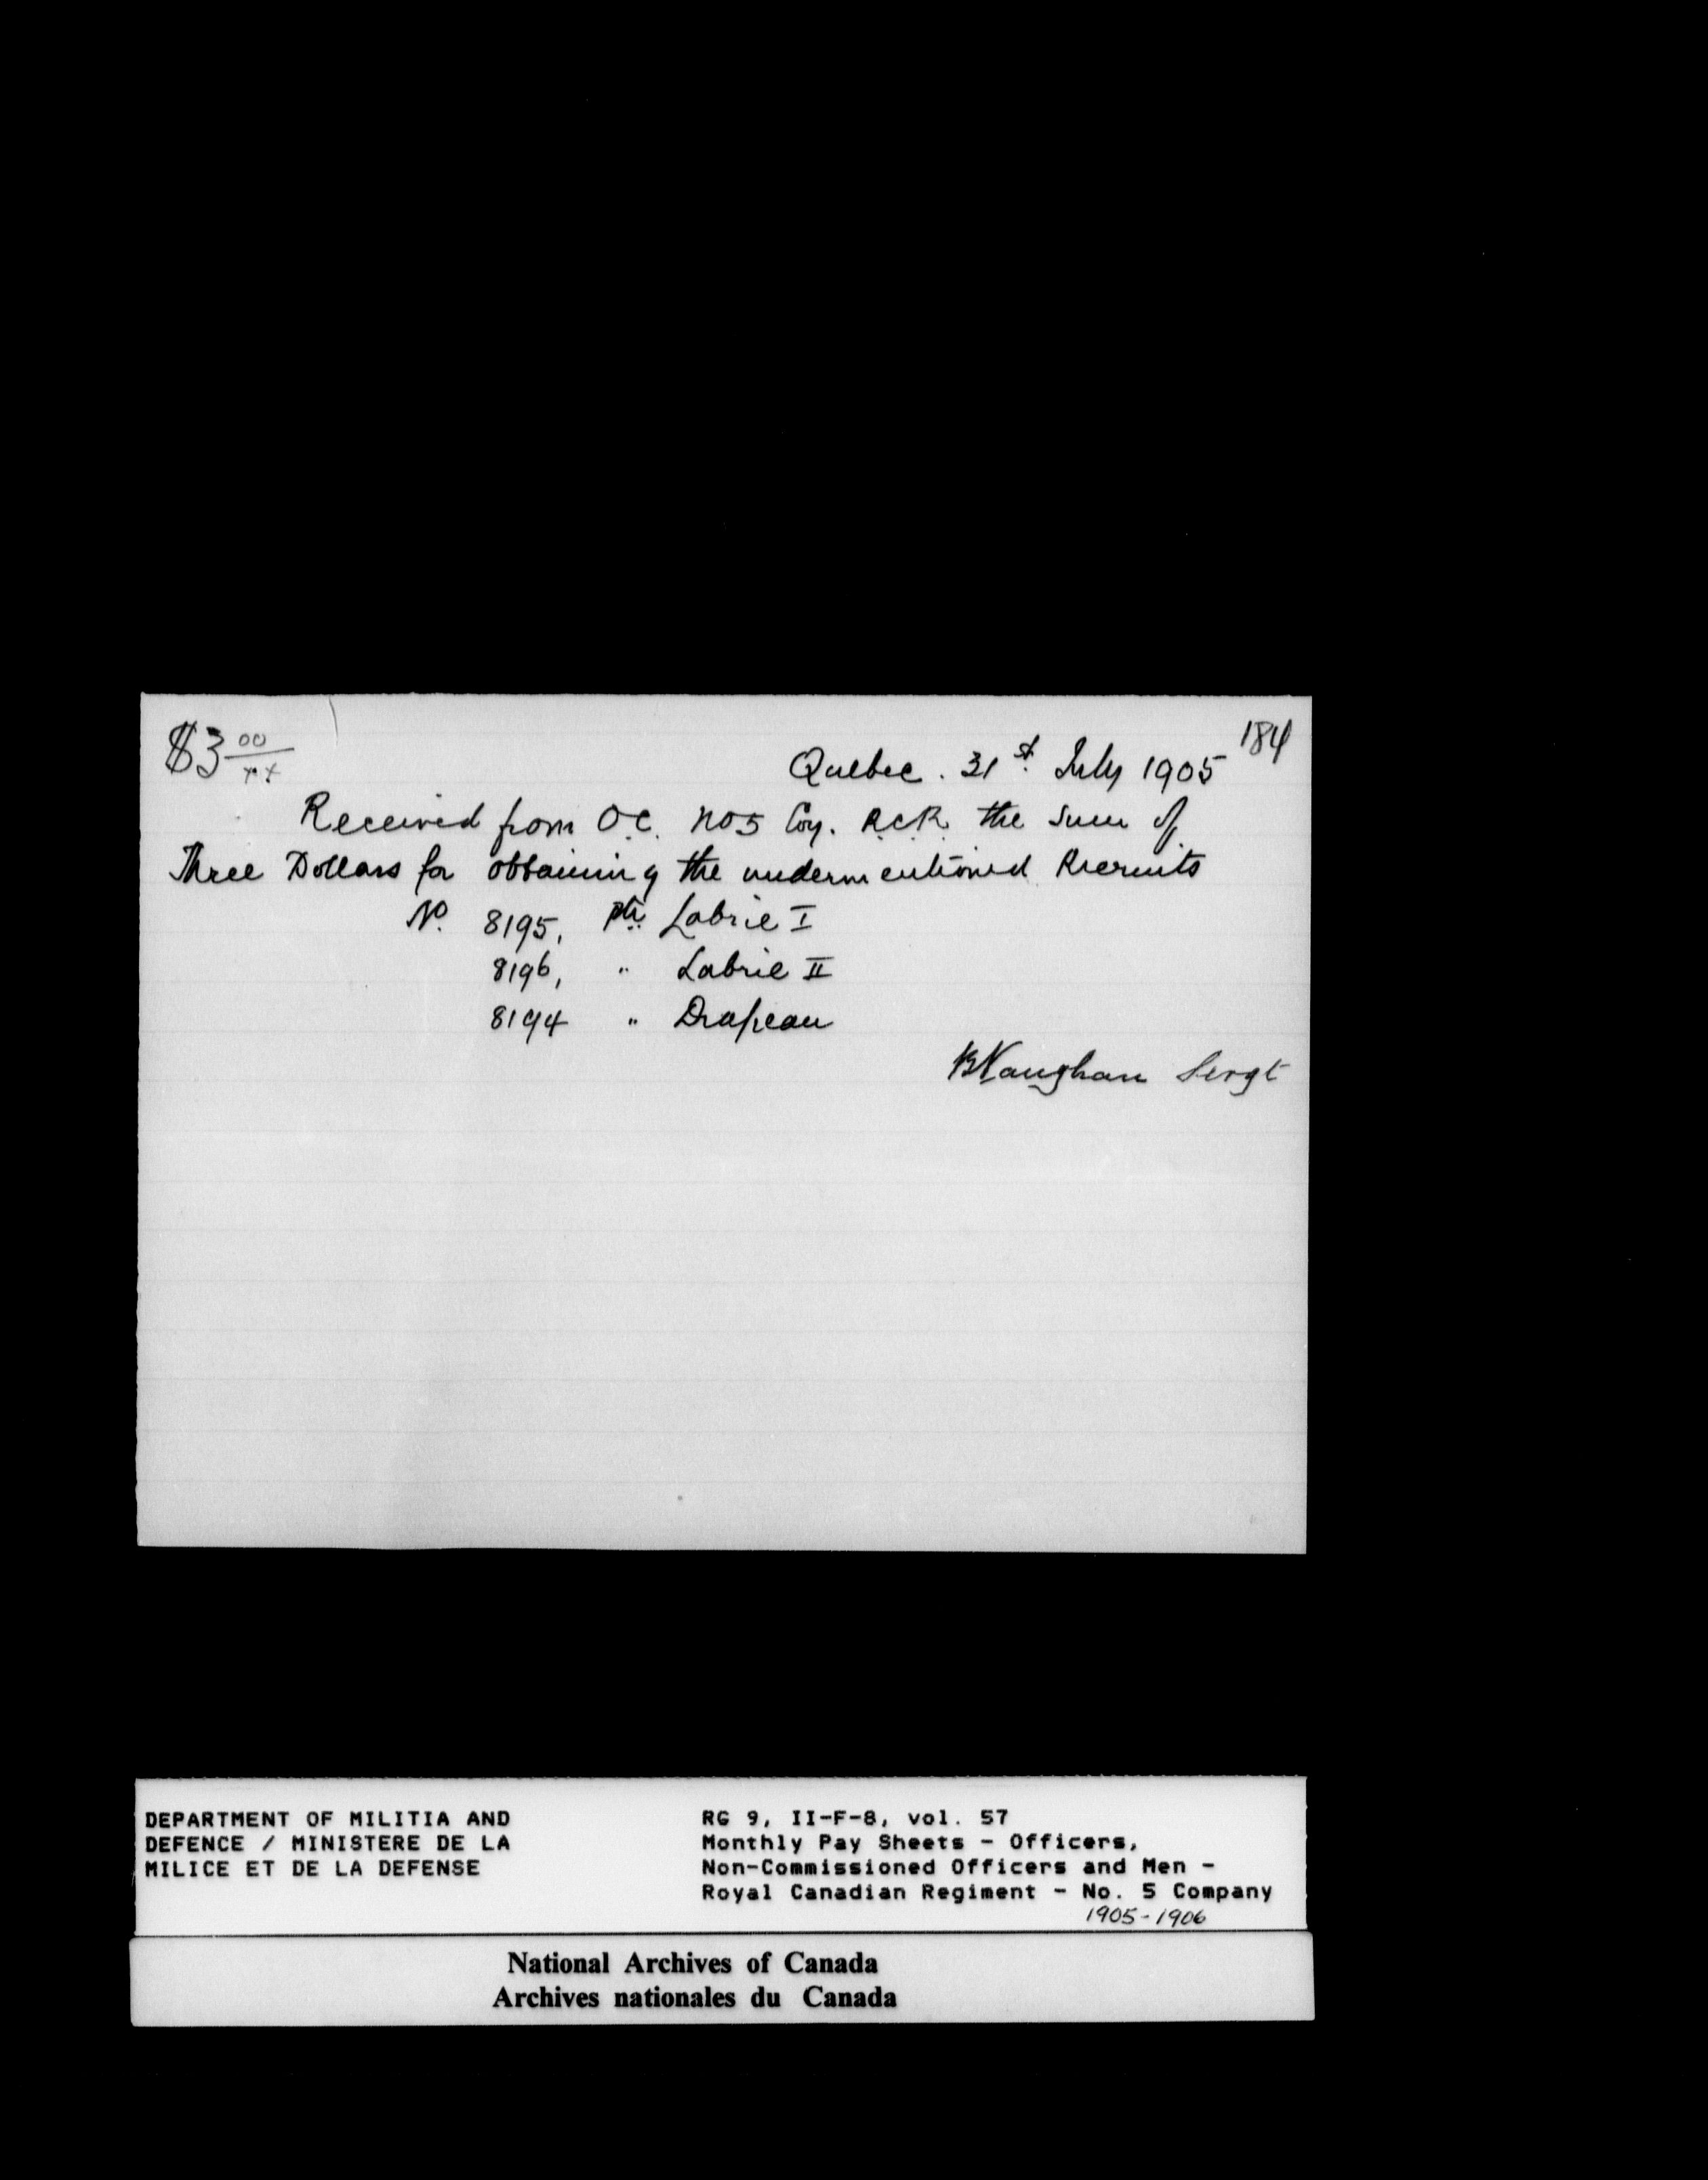 $3 00/xx
184
Quebec. 31st July 1905
Received from O.C. No 5 Coy. R.C.R. the sum of
Three Dollars for obtaining the undermentioned Recruits
No. 8195, Pte. Labrie I
8196, " Labrie II
8194 " Drapeau
B Vaughan Sergt
DEPARTMENT OF MILITIA AND
DEFENCE / MINISTERE DE LA
MILICE ET DE LA DEFENSE
RG 9, II-F-8, vol. 57
Monthly Pay Sheets - Officers,
Non-Commissioned Officers and Men -
Royal Canadian Regiment - No. 5 Company
1905-1906
National Archives of Canada
Archives nationales du Canada